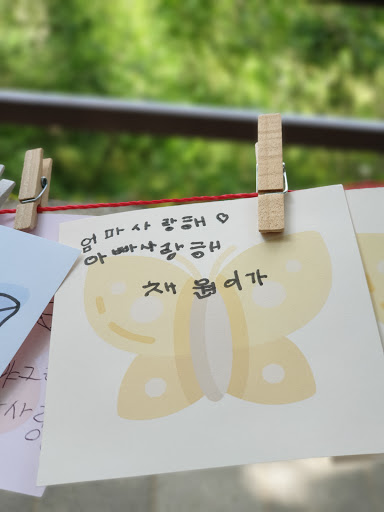 엄마사랑해♡
아빠사랑해
채원이가